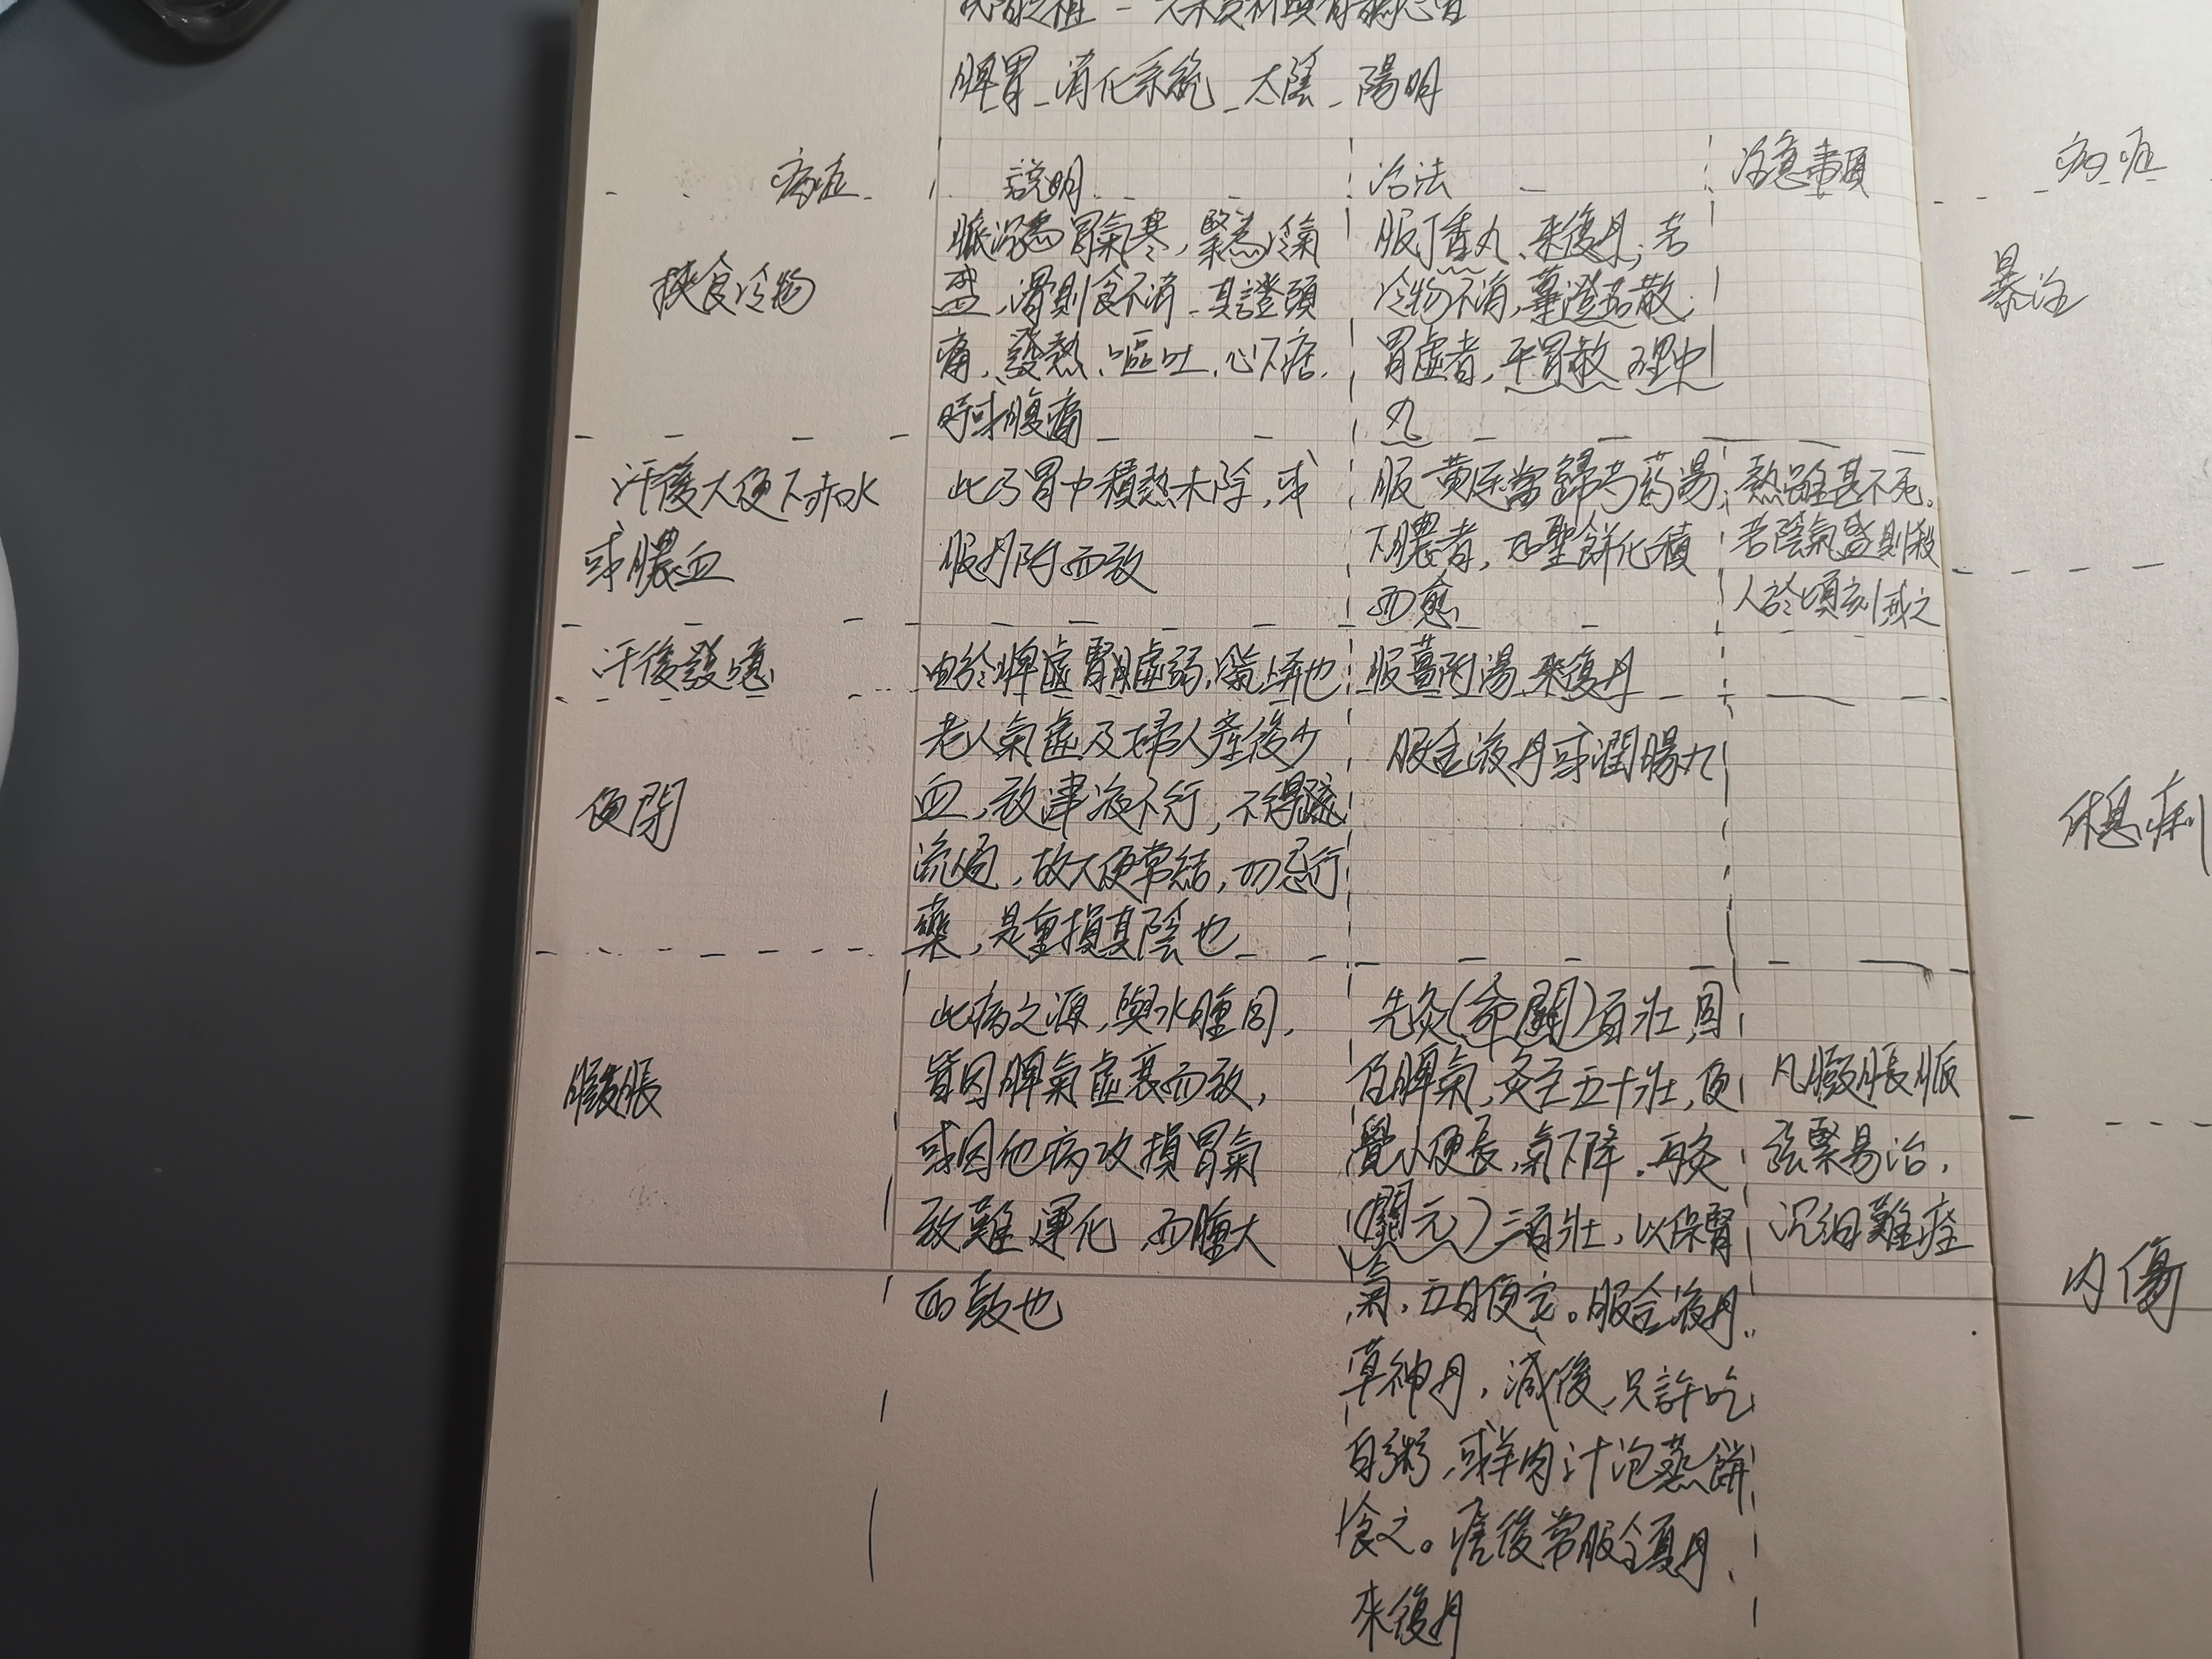 脾胃_消化系統_太陰_陽明
病症 說明 治法 注意事項
挾食冷物
脈沉為胃氣寒,緊為冷氣
盛,滑則食不消_其證頭
痛、發熱、嘔吐、心下痞、
時或腹痛
服丁香丸、來復丹;若
冷物不消,蓽澄茄散;
胃虛者,平胃散、理中
丸
汗後大便下赤水
或膿血
此乃胃中積熱未除,或
服丹附而致
服黃連當歸芍药湯;
下膿者,如聖餅化積
而愈
熱雖甚不死。
若陰氣盛則殺
人於頃刻戒之
汗後發噫
由於脾虛腎虛弱,冷氣上奔也
服薑附湯、來復丹
便閉
老人氣虛及婦人產後少
血,致津液不行,不得
流通,故大便常結,切忌行
藥,是重損其陰也
服金液丹或潤腸丸
臌脹
此病之源,與水腫同,
皆因脾氣虛衰而致,
或因他病攻損胃氣
致難運化,而腫大
而鼓也
先灸(命關)百壯,固
住脾氣,灸至五十壯,便
覺小便長,氣下降。再灸
(關元)三百壯,以保腎
氣,五日便安。服金液丹、
草神丹,減後,只許吃
白粥,或羊肉汁泡蒸餅
食之。瘥後常服全真丹、
來復丹
凡臌脹脈
弦緊易治,
沉細難痊
病症
暴注
休息痢
內傷